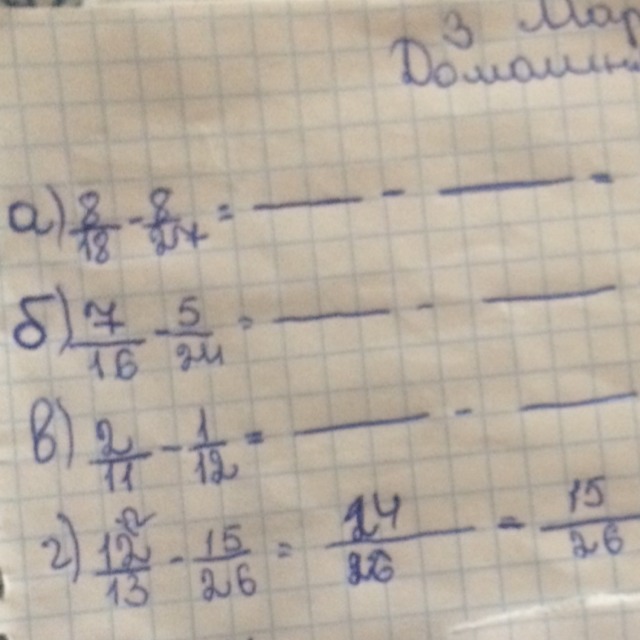 3 Мар
Домашн
а) 8/18 - 8/27 = — - — -
б) 7/16 - 5/24 = — - —
в) 2/11 - 1/12 = — - —
г) 12²/13 - 15/26 = 24/26 - 15/26